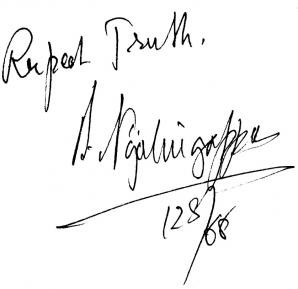 Respect Truth.
S. Nijalingappa
12 8/68